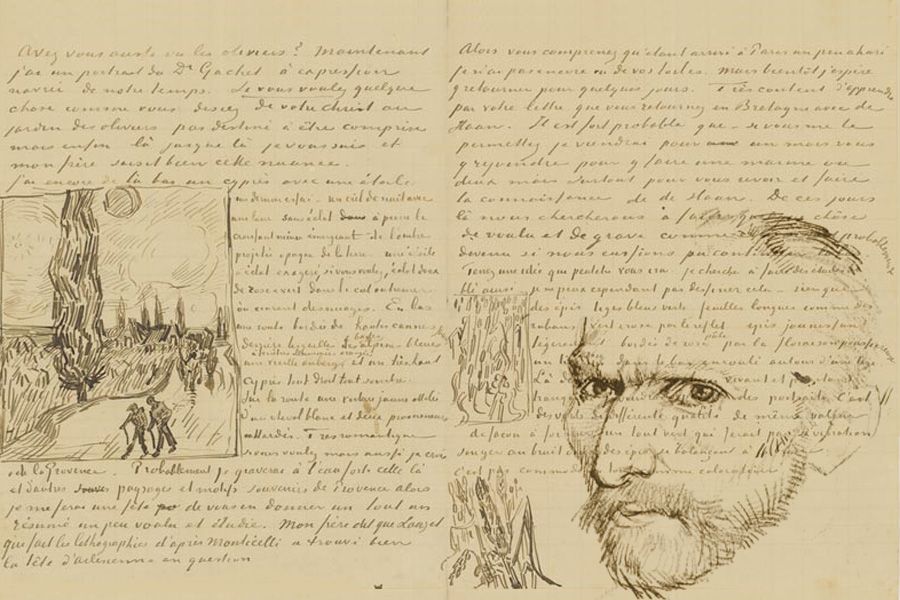 Avez vous aussi vu les oliviers? Maintenant
j'ai un portrait du Dr Gachet à expression
navrée de notre temps. Si vous voulez quelque
chose comme vous disiez de votre Christ au
jardin des oliviers pas destiné à être compris
mais enfin là jusque là je vous suis et
mon frère saisit bien cette nuance.
j'ai encore de là bas un cyprès avec une étoile
un dernier essai - un ciel de nuit avec
une lune sans éclat dans à peine le
croissant mince émergeant de l'ombre
projetée opaque de la terre - une étoile
à éclat exagéré si vous voulez, éclat doux
de rose et vert dans le ciel outremer
où courent des nuages. En bas
une route bordée de hautes cannes
derrière lesquelles les alpines basses bleues
une vieille auberge et un très haut
cyprès tout droit tout sombre.
Sur la route une voiture jaune attelée
d'un cheval blanc et deux promeneurs
attardés. Très romantique
si vous voulez mais aussi je crois
de la Provence. Probablement je graverai à l'eau forte celle là
et d'autres paysages et motifs souvenirs de Provence alors
je me ferai une fête de vous en donner un tout un
résumé un peu voulu et étudié. Mon frère dit que Lauzet
qui fait les lithographies d'après Monticelli a trouvé bien
la tête d'arlésienne en question
Alors vous comprenez qu'étant arrivé à Paris un peu ahuri
je n'ai pas encore vu de vos toiles. Mais bientôt j'espère
y retourner pour quelques jours. Très content d'apprendre
par votre lettre que vous retournez en Bretagne avec de
Haan. Il est fort probable que - si vous me le
permettez je viendrai pour un mois vous
y rejoindre pour y faire une marine ou
deux mais surtout pour vous revoir et faire
la connaissance de de Haan. De ces jours
là nous chercherons à faire quelque chose
de voulu et de grave comme probablement
devenu si nous eussions pu
Tenez une idée que peut-être vous ira je cherche à faire des études
blé ainsi je ne peux cependant pas dessiner cela - rien que
des épis tiges bleues vertes feuilles longues comme des
rubans vert et rose par le reflet épis jaunissant
légèrement bordés de rose pâle par la floraison
un dans le bas enroulé autour d'une tige
Là vivant et
des portraits
des verts de différente qualité de même valeur
de façon à former un tout vert qui ferait par sa vibration
songer au bruit des épis se balançant à
c'est pas commode comme coloration